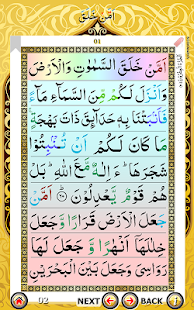 اَمَّنْ خَلَقَ
01
اَمَّنْ خَلَقَ السَّمٰوٰتِ وَالْاَرْضَ
وَاَنْزَلَ لَكُمْ مِّنَ السَّمَآءِ مَآءً ۚ
فَاَنْۢبَتْنَا بِهٖ حَدَآئِقَ ذَاتَ بَهْجَةٍ ۚ
مَا كَانَ لَكُمْ اَنْ تُنْۢبِتُوْا
شَجَرَهَا ؕ ءَاِلٰهٌ مَّعَ اللّٰهِ ؕ بَلْ
هُمْ قَوْمٌ يَّعْدِلُوْنَ ؕ اَمَّنْ
جَعَلَ الْاَرْضَ قَرَارًا وَّجَعَلَ
خِلٰلَهَاۤ اَنْهٰرًا وَّجَعَلَ لَهَا
رَوَاسِيَ وَجَعَلَ بَيْنَ الْبَحْرَيْنِ
02 NEXT BACK i